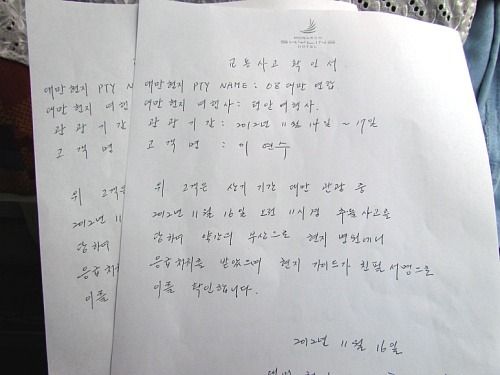 HOTEL
교통사고 확인서
대만현지 PTY NAME : OB대만 연합
대만현지 여행사: 태안여행사.
관광기간: 2012년 11월 14일 ~ 17일
고객명 : 이 연수
위 고객은 상기 기간 대만 관광 중
2012년 11월 16일 오전 11시경 추돌사고을
당하여 약간의 부상으로 현지 병원에서
응급처치를 받았으며 현지 가이드가 친필 서명으로
이를 확인합니다.
2012년 11월 16일
대만현지 PTY NA
대만현지 여행
관광기간
고객명
위 고객은
2012년 11
당하여
응급처치
이를